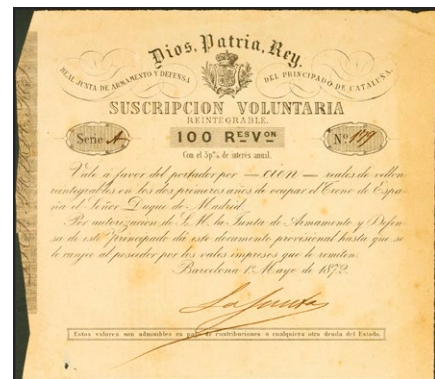 Dios, Patria, Rey.
REAL JUNTA DE ARMAMENTO Y DEFENSA DEL PRINCIPADO DE CATALUÑA.
SUSCRIPCION VOLUNTARIA
REINTEGRABLE.
Serie A
100 Rˢ Vᴼᴺ
Nº 119
Con el 5 p% de interes anual.
Vale a favor del portador por — cien — reales de vellon
reintegrables en los dos primeros años de ocupar el Trono de Espa-
ña el Señor Duque de Madrid.
Por autorizacion de S. M. la Junta de Armamento y Defen-
sa de este Principado dá este documento provisional hasta que se
le canjee al poseedor por los vales impresos que le remiten.
Barcelona 1º Mayo de 1872.
La Junta
Estos valores son admisibles en pago de contribuciones ó cualquiera otra deuda del Estado.